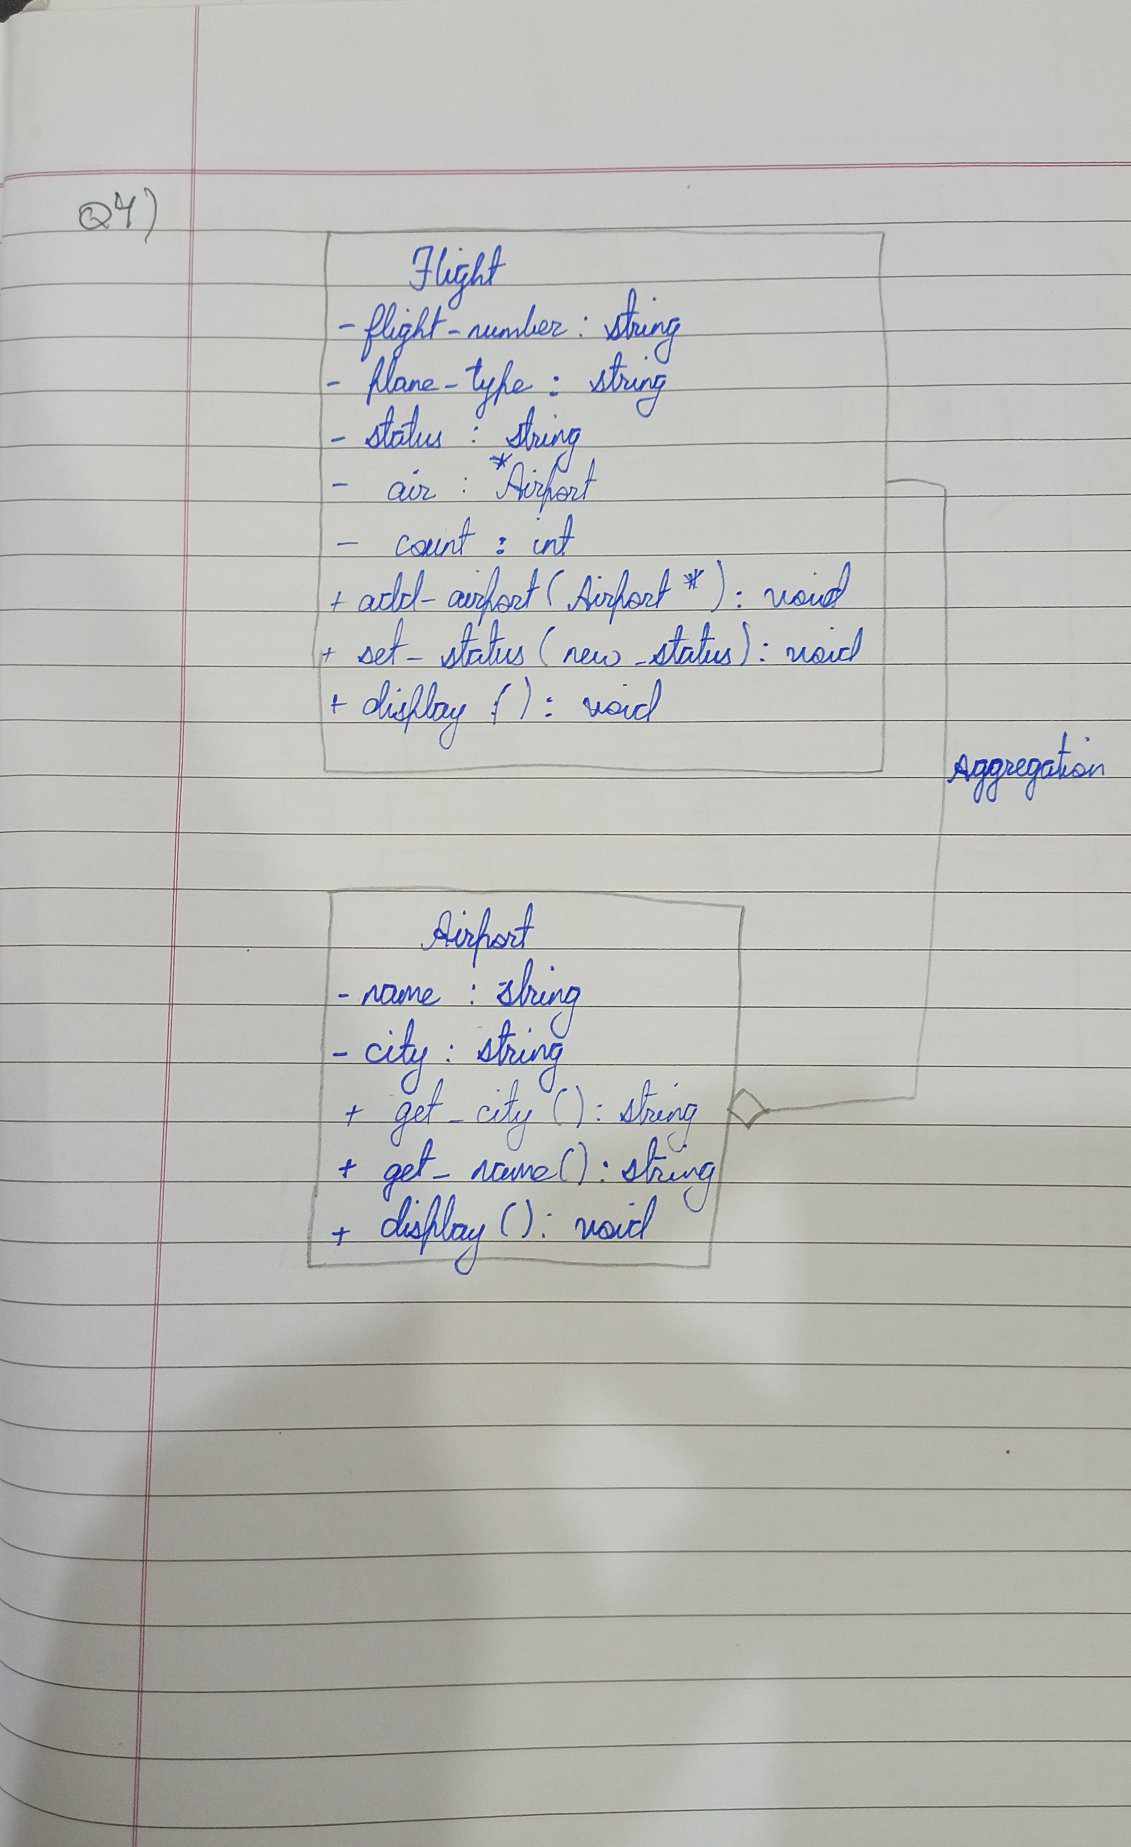 Q4)
Flight
- flight-number : string
- plane-type : string
- status : string
- air : *Airport
- count : int
+ add-airport(Airport*) : void
+ set-status(new_status) : void
+ display() : void
Aggregation
Airport
- name : string
- city : string
+ get_city() : string
+ get_name() : string
+ display() : void